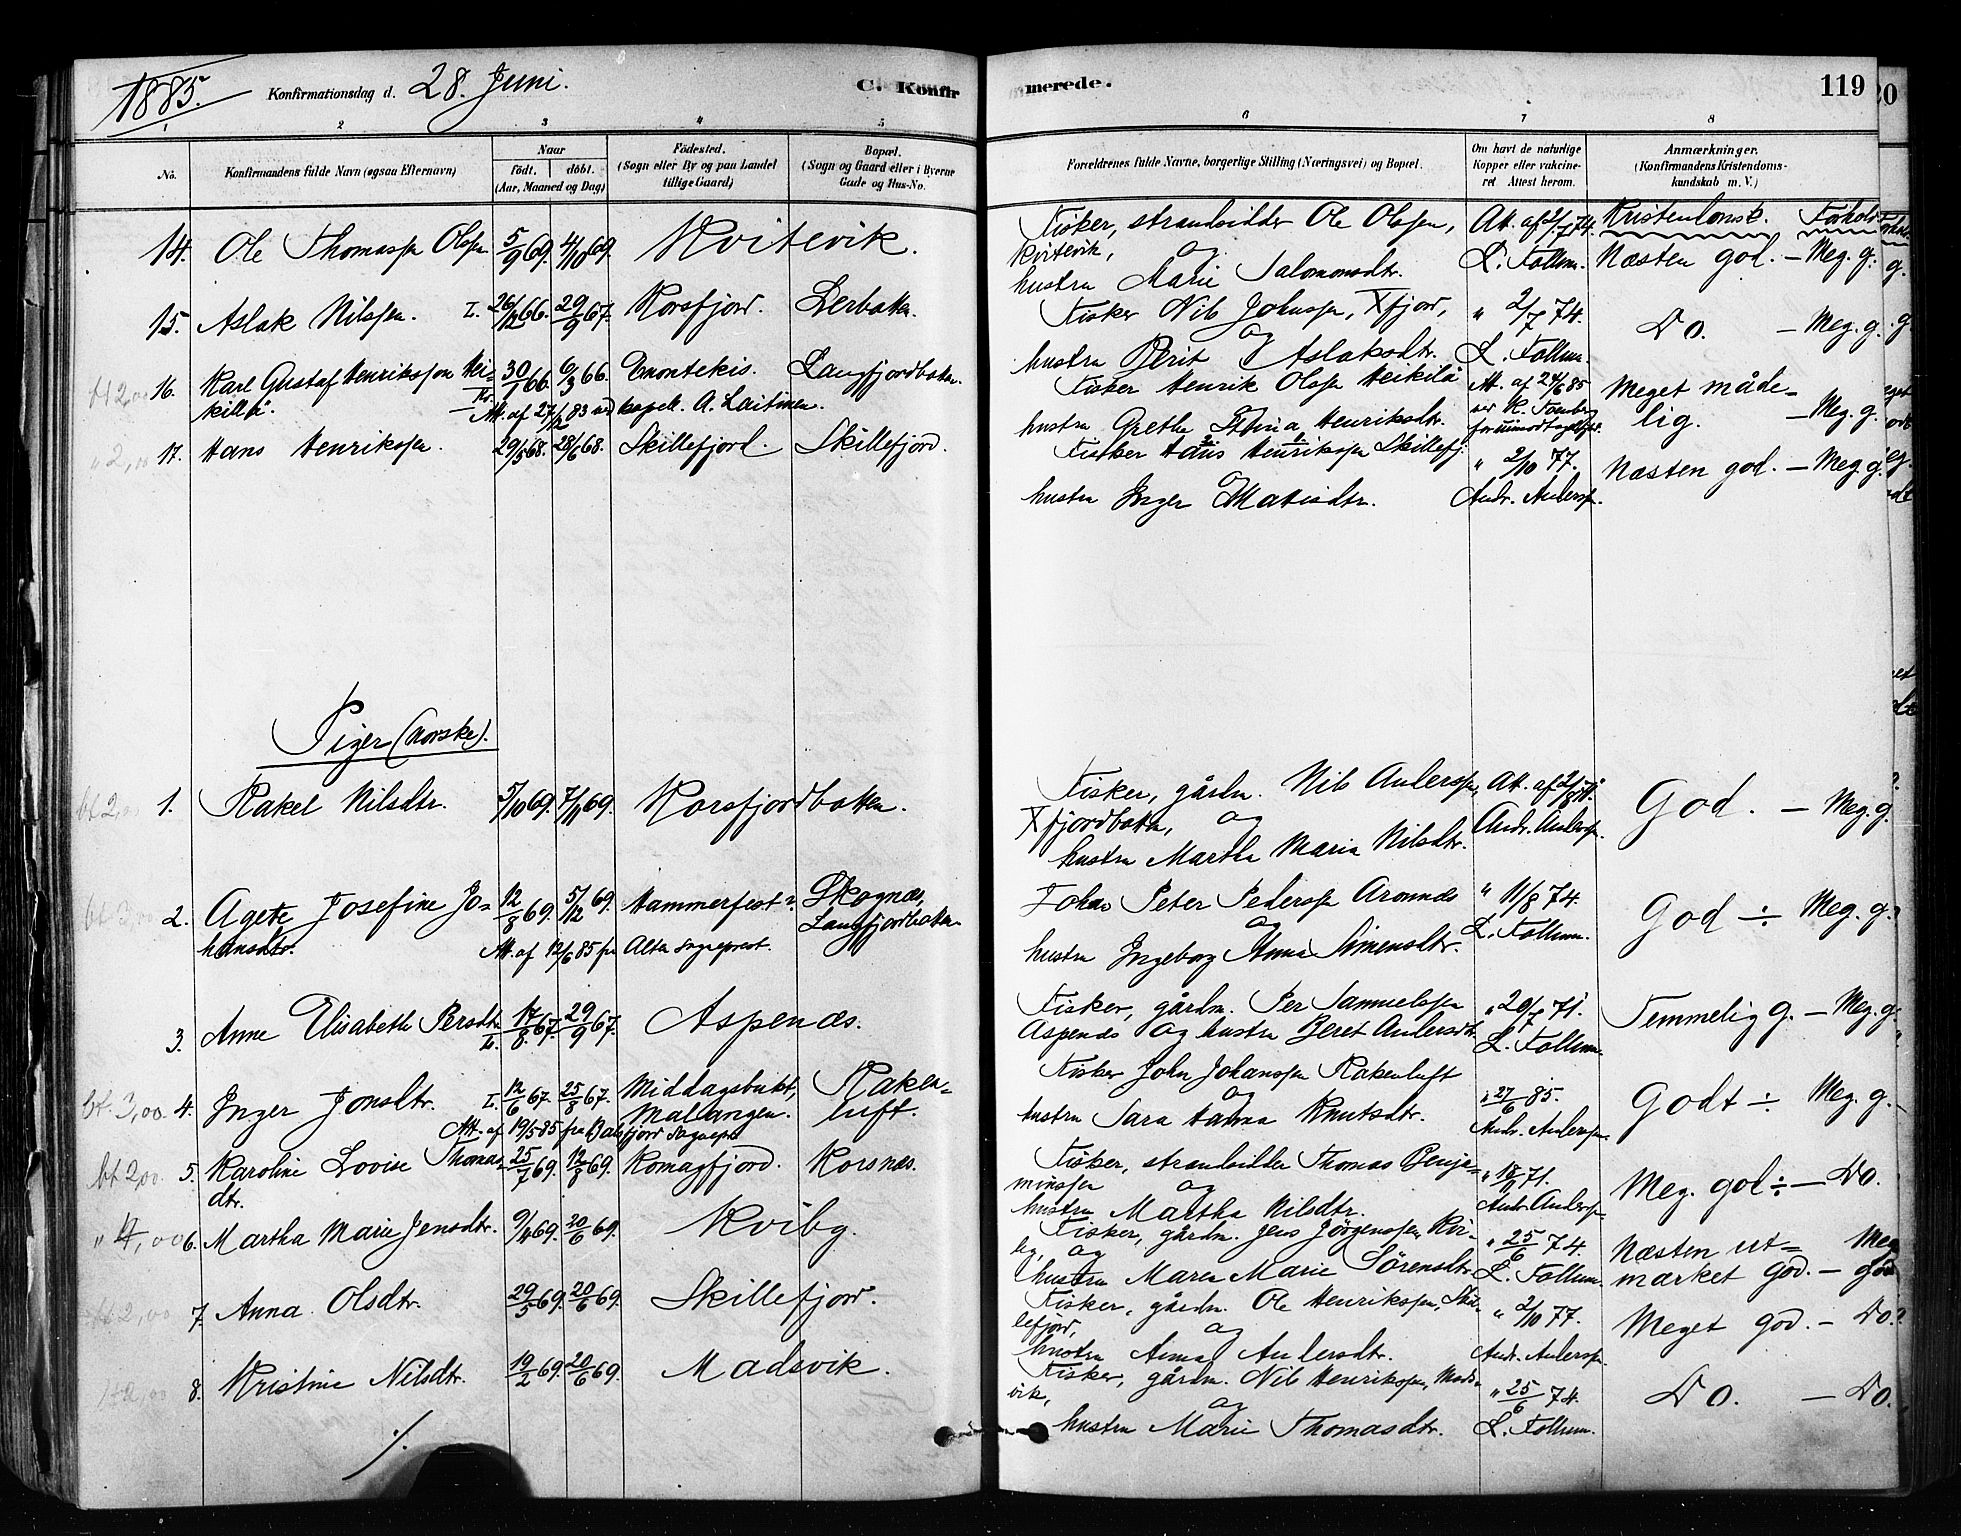 1885. Konfirmationsdag d. 28. Juni. C. Konfir merede. 119
1 2 3 4 5 6 7 8
No. Konfirmandens fulde Navn (ogsaa Efternavn) Naar födt, döbt. (Aar, Maaned og Dag) Födested. (Sogn eller By og paa Landet tillige Gaard) Bopæl. (Sogn og Gaard eller i Byerne Gade og Hus-No.
Forældrenes fulde Navne, borgerlige Stilling (Næringsvei) og Bopæl. Om havt de naturlige Kopper eller vakcineret Attest herom. Anmærkninger. (Konfirmandens Kristendomskundskab m. V.)
14. Ole Thomassen Olsen 5/9 69. 4/10 69. Kvitevik. Fisker, strandsidder Ole Olsen, Att. af 2/7 74. Kristendomsk. Forhold
Kvitevik, og L. Follum. Næsten god. — Meg. g.
hustru Marie Salomonsdtr.
15. Aslak Nilssen. L. 26/12 66. 29/9 67. Korsfjord. Lerbotn. Fisker Nils Johnsen, Xfjord, " 2/7 74. Do. — Meg. g.
og
hustru Berit Aslaksdtr. L. Follum.
bt 2,00 16. Karl Gustaf Henriksson Hei- 30/1 66. 6/3 66. Enontekis. Langfjordbotn. Fisker Henrik Olsen Heikilä Att. af 24/6 85 Meget måde-
killä. Att. af 27/12 83 ved kapell. A. Laitinen. hustru Grethe Stina Henriksdtr. lig. — Meg. g.
" 2,00 17. Hans Henriksen. 29/5 68. 28/6 68. Skillefjord. Skillefjord. Fisker Hans Henriksen Skillefj. " 2/10 77. Næsten god. — Meg. g.
og
hustru Inger Matisdtr. Andr. Andersen.
Piger (norske).
bt. 2,00 1. Rakel Nilsdtr. 5/10 69. 7/11 69. Korsfjordbotten. Fisker, gårdm. Nils Andersen, Att. af God. — Meg. g.
Xfjordbotn, og Andr. Andersen.
hustru Martha Maria Nilsdtr.
bt 3,00 2. Agete Josefine Jo- 12/8 69. 5/12 69. Hammerfest Skognæs, Johas Peter Pedersen Aronnæs " 11/8 74. God ÷ Meg. g.
hansdtr. Att. af 12/6 85 fra Alta sogneprest. Langfjordbotn. og L. Follum.
hustru Ingeborg Anna Simensdtr.
3. Anne Elisabeth Persdtr. L. 17/8 67. 29/9 67. Aspenæs. Fisker, gårdm. Per Samuelsen " 20/7 71. Temmelig g. — Meg. g.
Aspenæs og hustru Beret Andersdtr. L. Follum.
bt. 3,00 4. Inger Jonsdtr. L. 12/6 67. 25/8 67. Middagsbukt, Raken- Fisker John Johanssen Rakenluft " 27/6 85. Godt ÷ Meg. g.
Att. af 19/5 85 fra Balsfjord Sognepr. Malangen. luft. og
hustru Sara Hanna Knutsdtr. Andr. Andersen.
bt 2,00 5. Karoline Lovise Thomas- 25/7 69. 12/8 69. Komagfjord. Korsnæs. Fisker, strandsidder Thomas Benja- Meg. god ÷ — Do.
dtr. minsen og
hustru Martha Nilsdtr. Andr. Andersen.
" 4,00 6. Martha Marie Jensdtr. 9/4 69. 20/6 69. Kviby. Fisker, gårdm. Jens Jörgenssen, Kvi- " 25/6 74. Næsten ut- Meg.
by, og
hustru Maren Marie Sörensdtr. L. Follum. mærket god. — god.
bt 2,00 7. Anna Olsdtr. 29/5 69. 20/6 69. Skillefjord. Fisker, gårdm. Ole Henriksen, Skil- " 2/10 77. Meget god. — Do.
lefjord, og
hustru Anna Andersdtr. Andr. Andersen.
8. Kristine Nilsdtr. 19/2 69. 20/6 69. Madsvik. Fisker, gårdm. Nils Henriksen, Mads- " 25/6 74. Do. — Do.
vik, og
hustru Marie Thomasdtr. L. Follum.